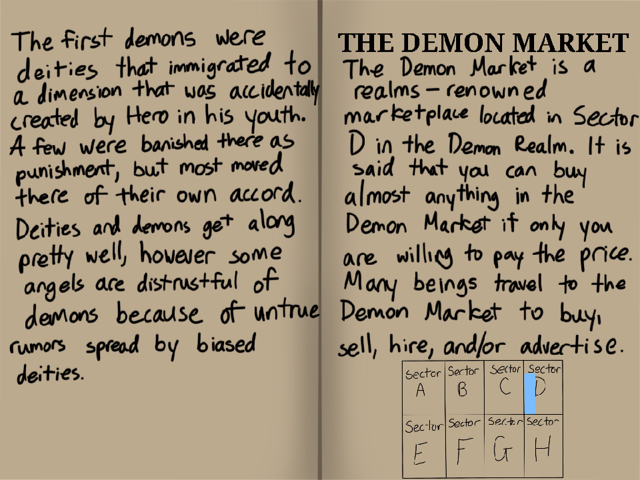 The first demons were
deities that immigrated to
a dimension that was accidentally
created by Hero in his youth.
A few were banished there as
punishment, but most moved
there of their own accord.
Deities and demons get along
pretty well, however some
angels are distrustful of
demons because of untrue
rumors spread by biased
deities.
THE DEMON MARKET
The Demon Market is a
realms-renowned
marketplace located in Sector
D in the Demon Realm. It is
said that you can buy
almost anything in the
Demon Market if only you
are willing to pay the price.
Many beings travel to the
Demon Market to buy,
sell, hire, and/or advertise.
Sector Sector Sector Sector
A B C D
Sector Sector Sector Sector
E F G H